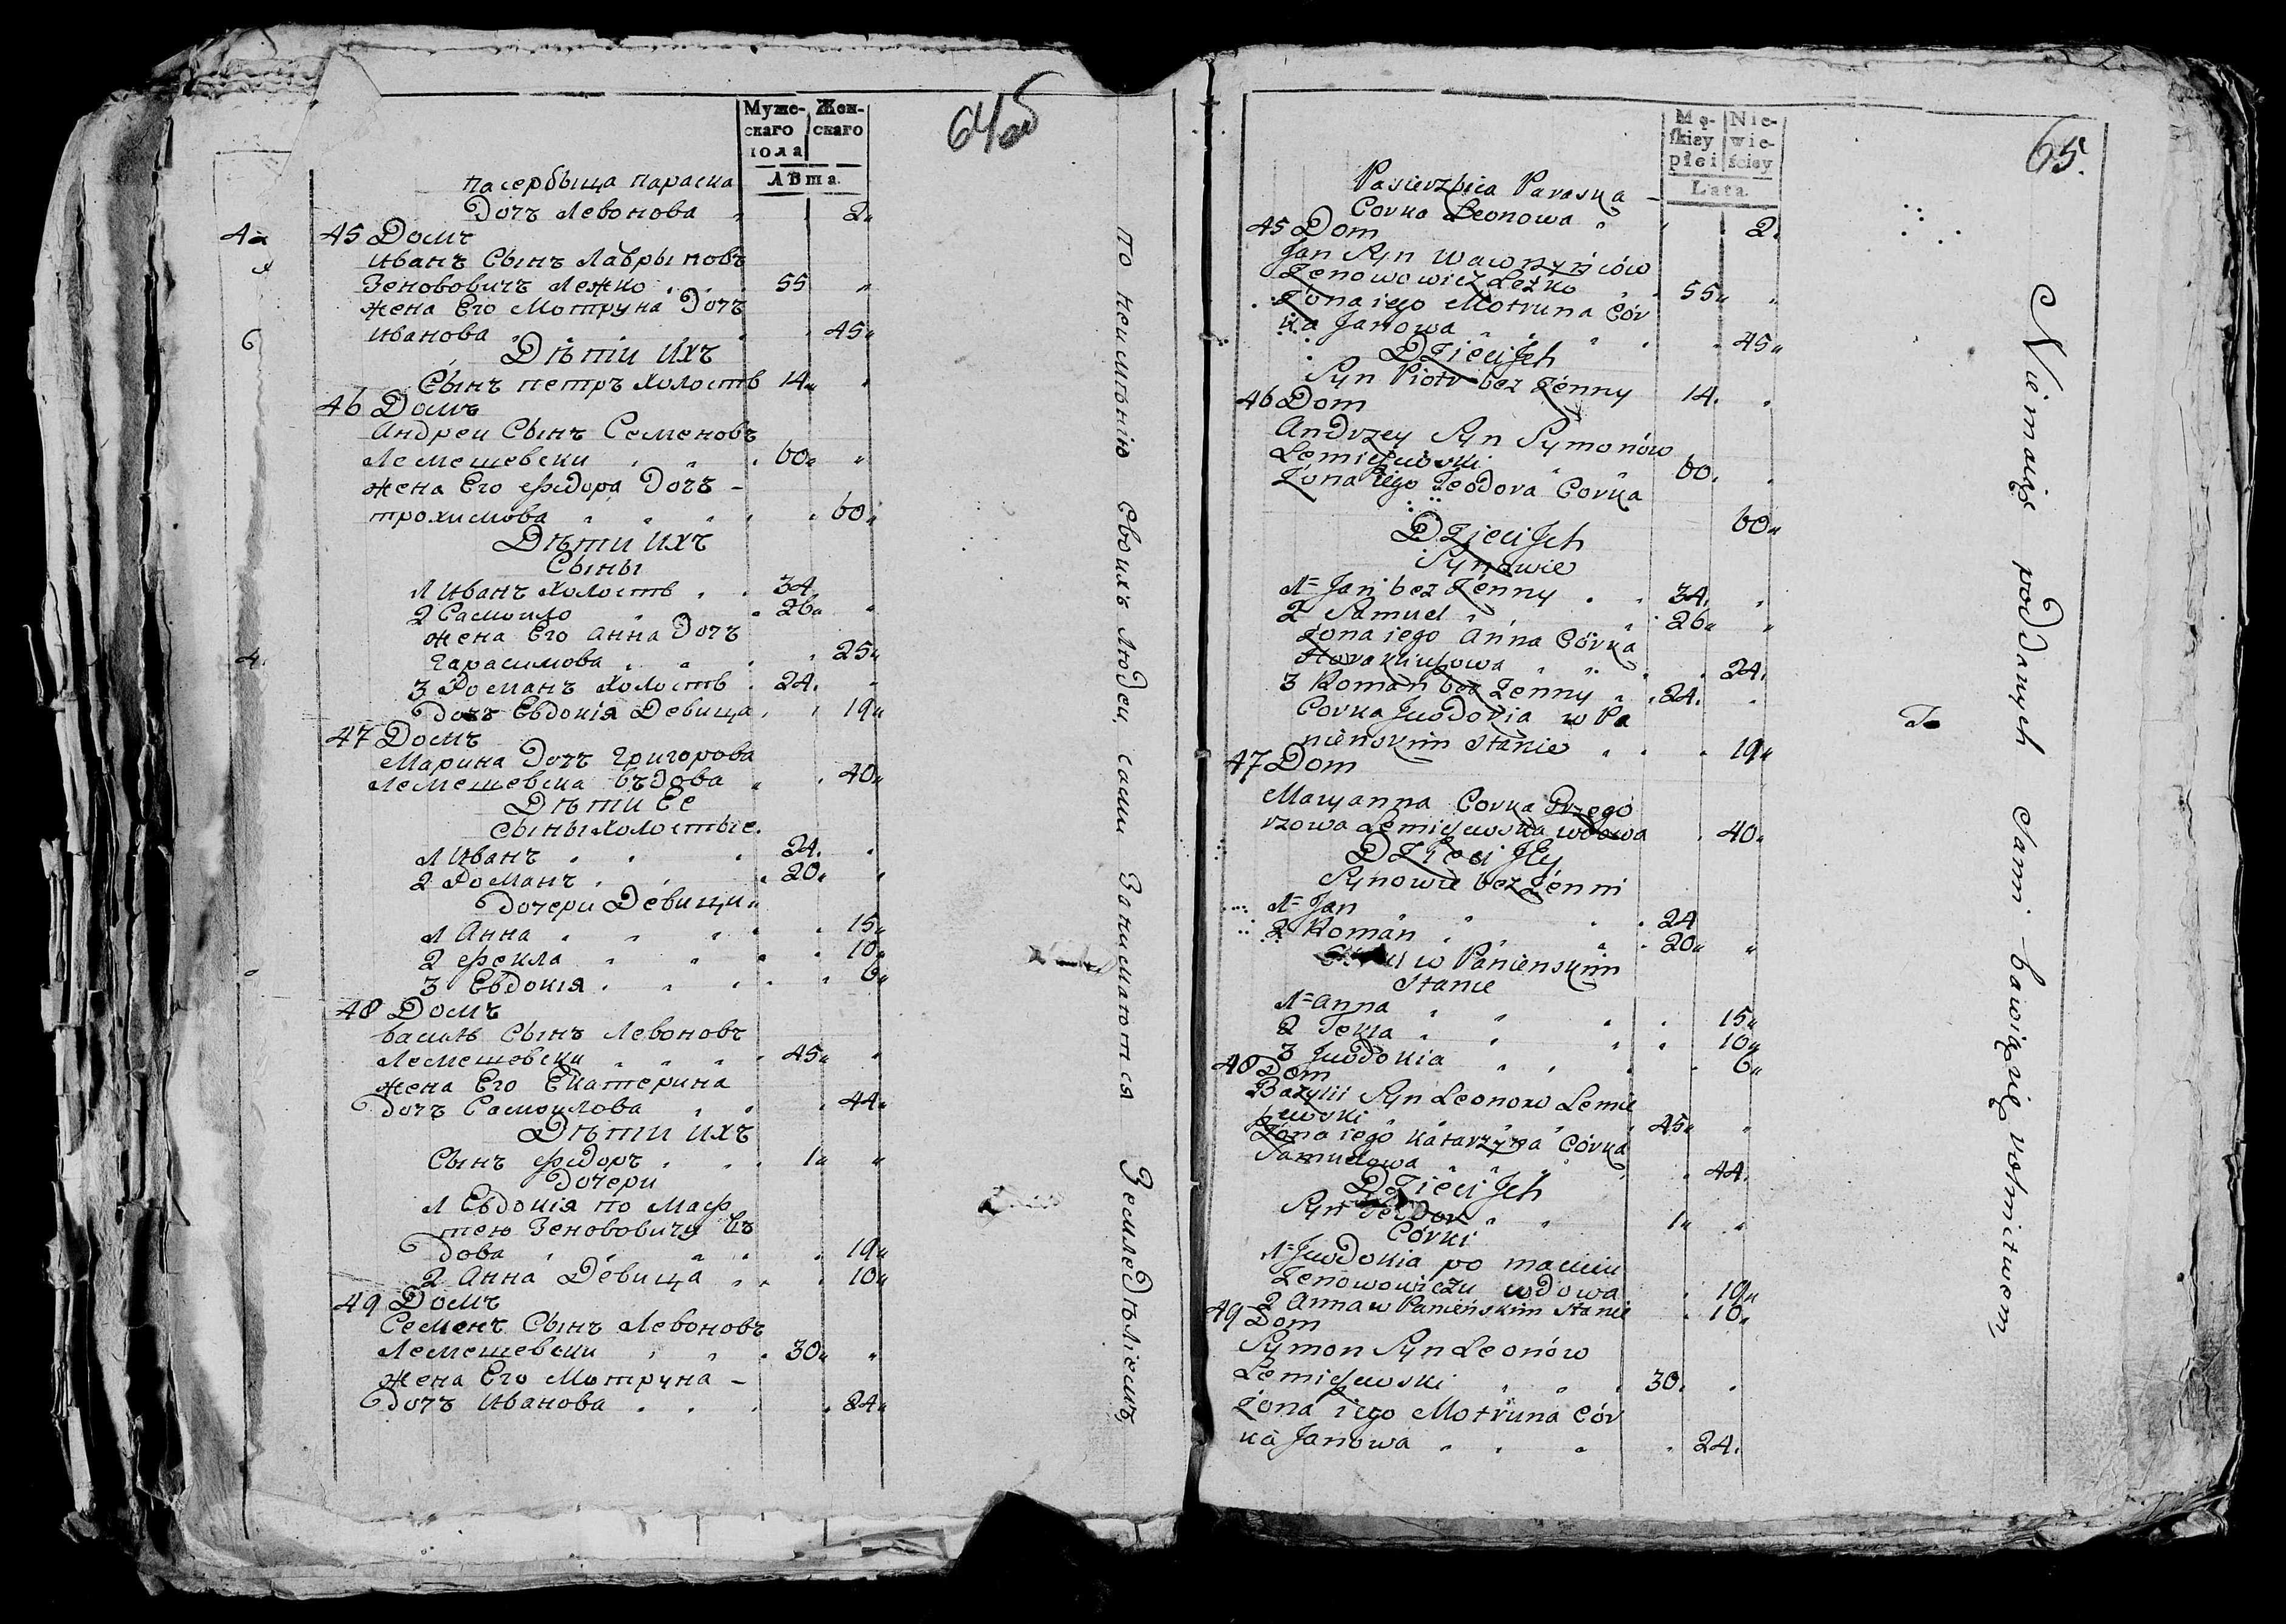 Муже- Жен-
скаго скаго
пола
Лѣта.
64 об
пасербыца параска
Дочъ Левонова 2
45 Домъ
Иванъ Сынъ Лаврыновъ
Зенововичъ Лежко 55
жена Его Мотруна Дочъ
Иванова 45
Дѣти Ихъ
Сынъ петръ холостъ 14
46 Домъ
Андреи Сынъ Семеновъ
Лемешевски 60
жена Его Ѳедора Дочъ –
трохимова 60
Дѣти Ихъ
Сыны
1 Иванъ холостъ 34
2 Самоило 26
жена Его Анна Дочъ
Гарасимова 25
3 Романъ холостъ 24
дочъ Евдокія Девица 19
47 Домъ
Марина Дочъ Григорова
Лемешевска въдова 40
Дѣти Ее
сыны холостые
1 Иванъ 24
2 Романъ 20
дочери Девицы
1 Анна 15
2 Ѳекла 10
3 Евдокія 6
48 Домъ
василь Сынъ Левоновъ
Лемешевски 45
жена Его Екатерина
дочъ Самоилова 44
Дѣти ихъ
Сынъ Ѳедоръ 1
дочери
1 Евдокія по Маѳ
тею Зенововичу въ
дова 19
2 Анна Девица 10
49 Домъ
Семенъ Сынъ Левоновъ
Лемешевски 30
жена Его Мотруна –
дочъ Иванова 24
по неимѣнію Своихъ Людеи, сами Занимаются Земледѣліемъ
Mę- Nie-
skiey wie-
płci ściey
Lata.
65.
Pasierzbica Paraska –
Corka Leonowa 2
45 Dom
Jan Syn Wawrzyńców
Zenowowicz Leżko 55
Żona iego Motruna Cór
ka Janowa 45
Dzieci Jch
Syn Piotr bez Żenny 14
46 Dom
Andrzey Syn Symonów
Lemieszewski 60
Żona iego Teodora Corka
60
Dzieci Jch
Synowie
1 Jan bez Żenny 34
2 Samuel 26
Żona iego Anna Córka
24
3 Roman bez Żenny 24
Corka Jwdokia w Pa
nieńskim stanie 19
47 Dom
Maryanna Corka Grzego
rzowa Lemieszewska wdowa 40
Dzieci Jey
Synowie bez Żenni
1 Jan 24
2 Roman 20
w Panienskim
Stanie
1 Anna 15
2 Tekla 10
3 Jwdokia 6
48 Dom
Bazylii Syn Leonow Lemie
szewski 45
Żona iego Katarzyna Córka
Samuelowa 44
Dzieci Jch
Syn Teodor 1
Córki
1 Jwdokia po Macieiu
Zenowowiczu wdowa 19
2 Anna w Panieńskim stanie 10
49 Dom
Symon Syn Leonów
Lemieszewski 30
Żona iego Motruna Cór
ka Janowa 24
Niemaiąc poddanych sami bawią się rolnictwem